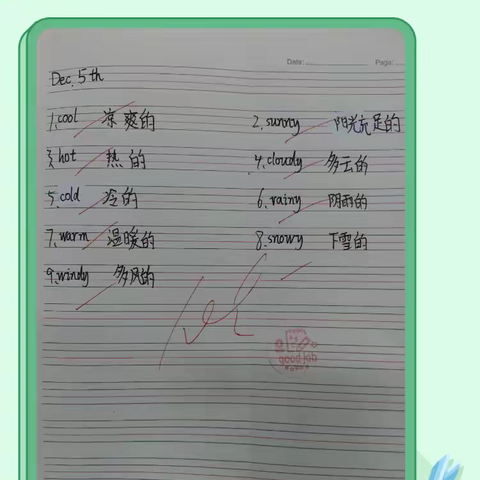 Date: Page:
Dec. 5th
1. cool 凉爽的 2. sunny 阳光充足的
3. hot 热的 4. cloudy 多云的
5. cold 冷的 6. rainy 阴雨的
7. warm 温暖的 8. snowy 下雪的
9. windy 多风的
good job